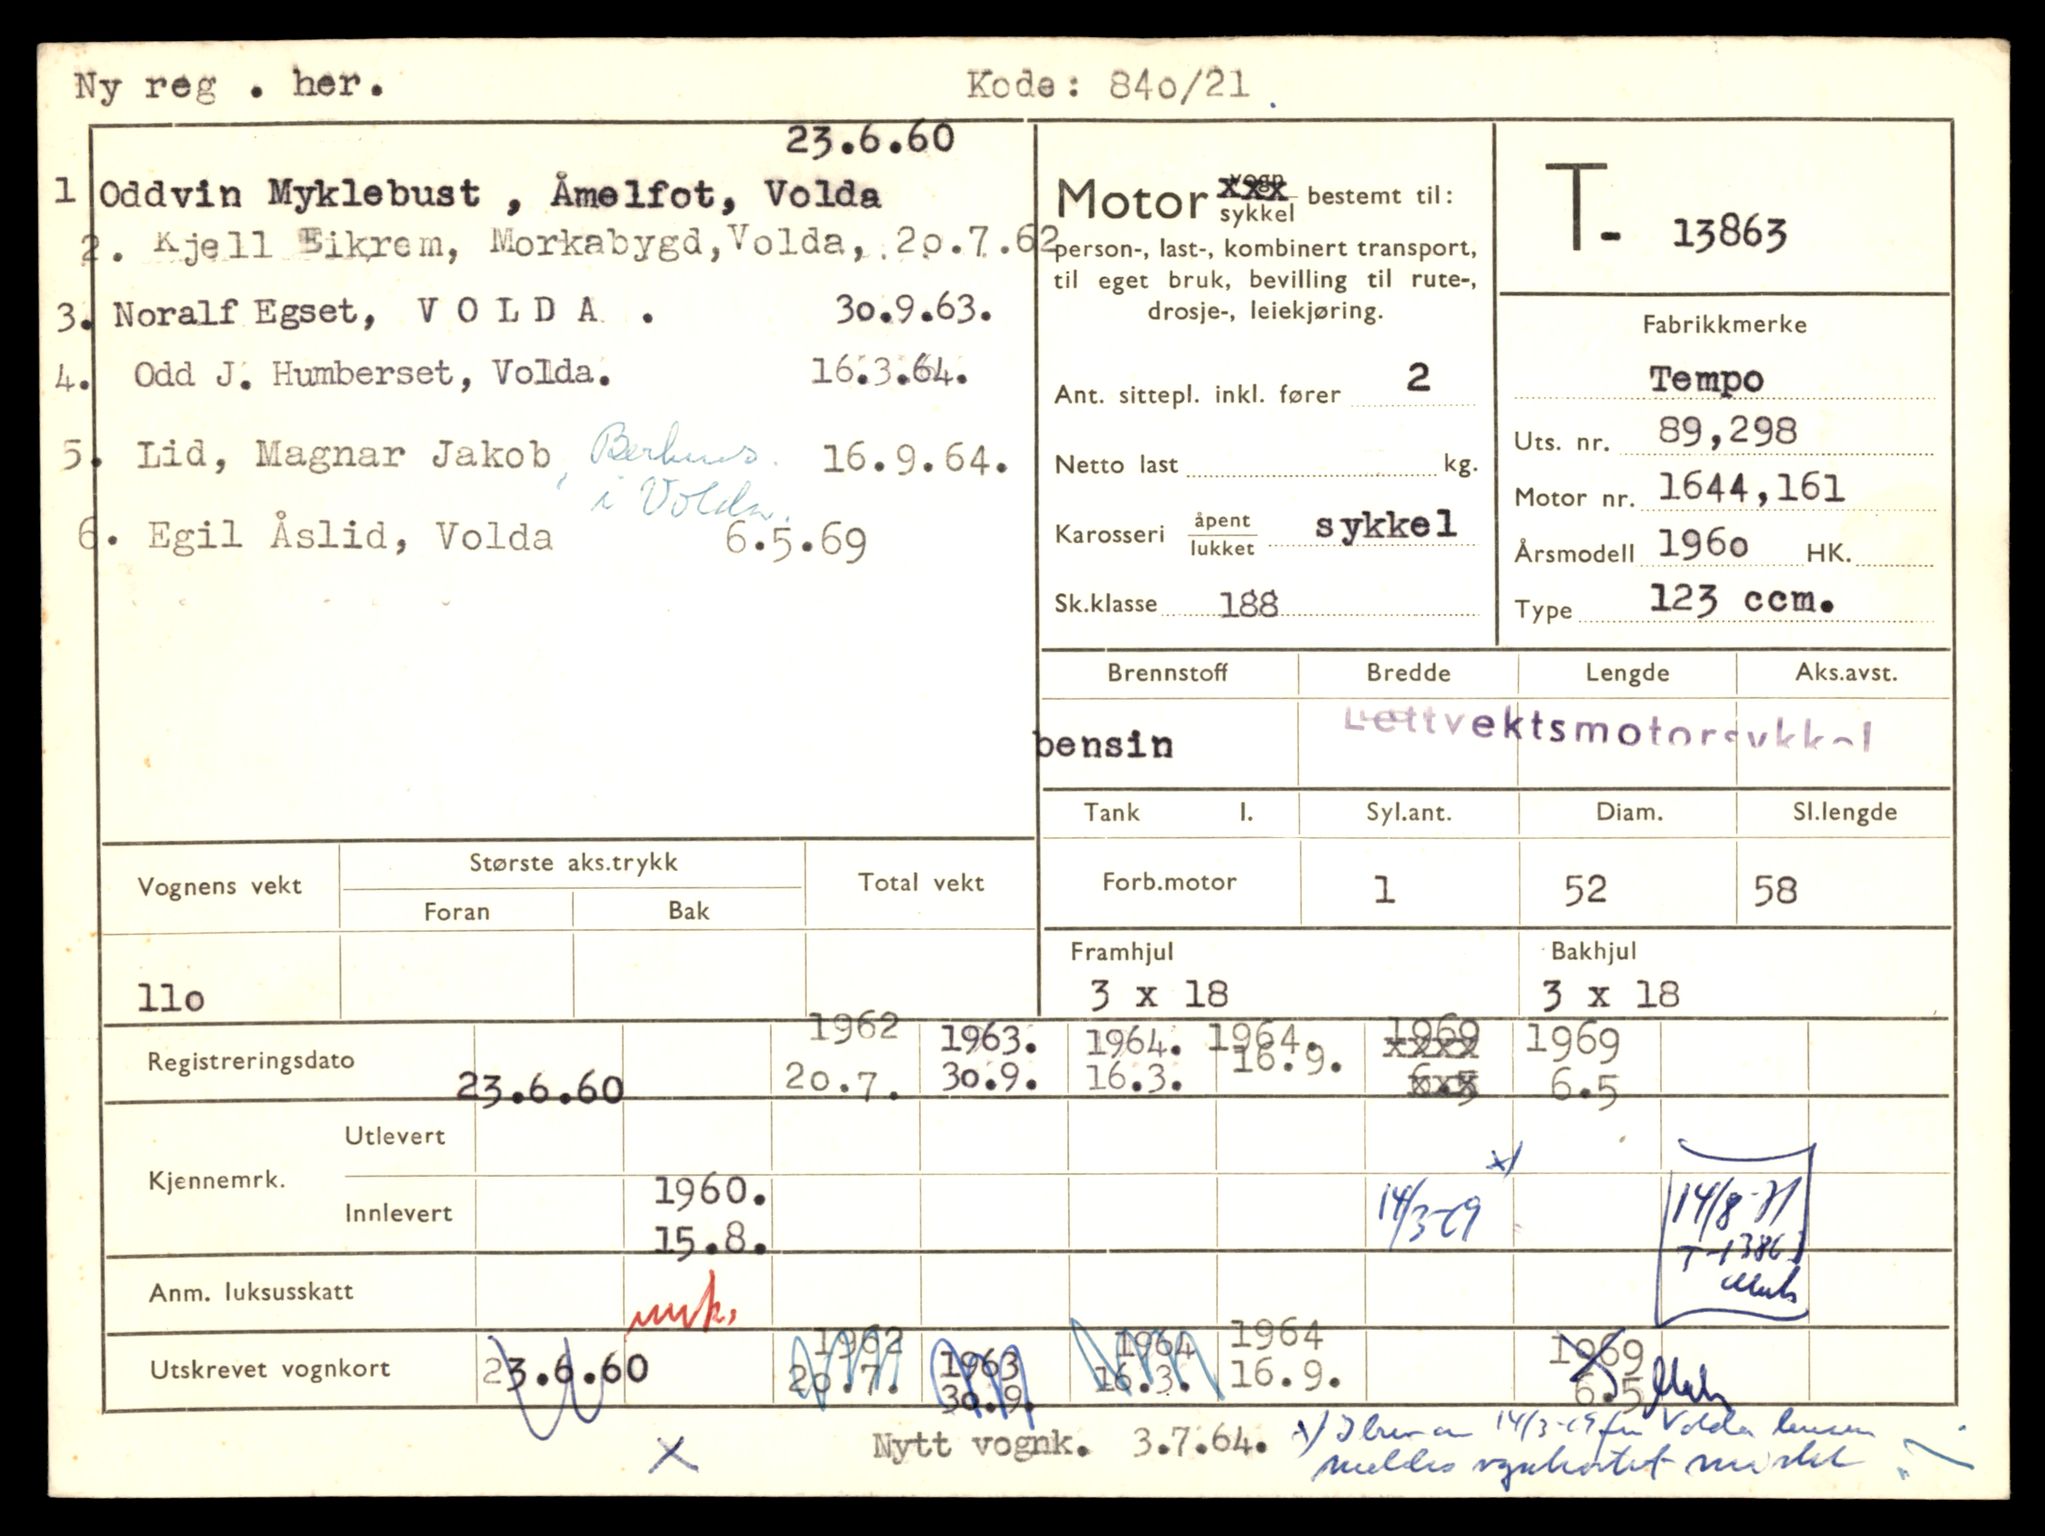 Ny reg . her.
Kode: 84o/21
23.6.60
1 Oddvin Myklebust , Åmelfot, Volda
2. Kjell Eikrem, Morkabygd, Volda, 2o.7.62
3. Noralf Egset, V O L D A . 3o.9.63.
4. Odd J. Humberset, Volda. 16.3.64.
5. Lid, Magnar Jakob, 16.9.64.
i Volda.
6. Egil Åslid, Volda 6.5.69
Motor vogn xxx
sykkel bestemt til:
person-, last-, kombinert transport,
til eget bruk, bevilling til rute-,
drosje-, leiekjøring.
Ant. sittepl. inkl. fører 2
Netto last kg.
Karosseri åpent
lukket sykkel
Sk.klasse 188
T- 13863
Fabrikkmerke
Tempo
Uts. nr. 89,298
Motor nr. 1644,161
Årsmodell 196o HK.
Type 123 ccm.
Brennstoff Bredde Lengde Aks.avst.
bensin Lettvektsmotorsykkel
Tank l. Syl.ant. Diam. Sl.lengde
Forb.motor 1 52 58
Framhjul Bakhjul
3 x 18 3 x 18
Vognens vekt Største aks.trykk Total vekt
Foran Bak
11o
Registreringsdato 1962 1963. 1964. 1964. 1969 xxxx 1969
23.6.60 2o.7. 3o.9. 16.3. 16.9. 6.5 xxx 6.5
Kjennemrk. Utlevert
x)
Innlevert 1960. 14/3-69 14/8-71
15.8. T-13863
Anm. luksusskatt
Utskrevet vognkort 23.6.60 1962 1963 1964 1964 1969
2o.7. 3o.9. 16.3. 16.9. 6.5
Nytt vognk. 3.7.64.
x) 14/3-69 Volda
x